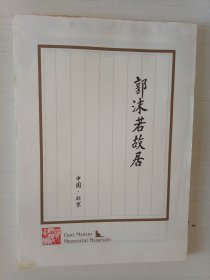 郭沫若故居
中国·北京
Guo Moruo
Memorial Museum